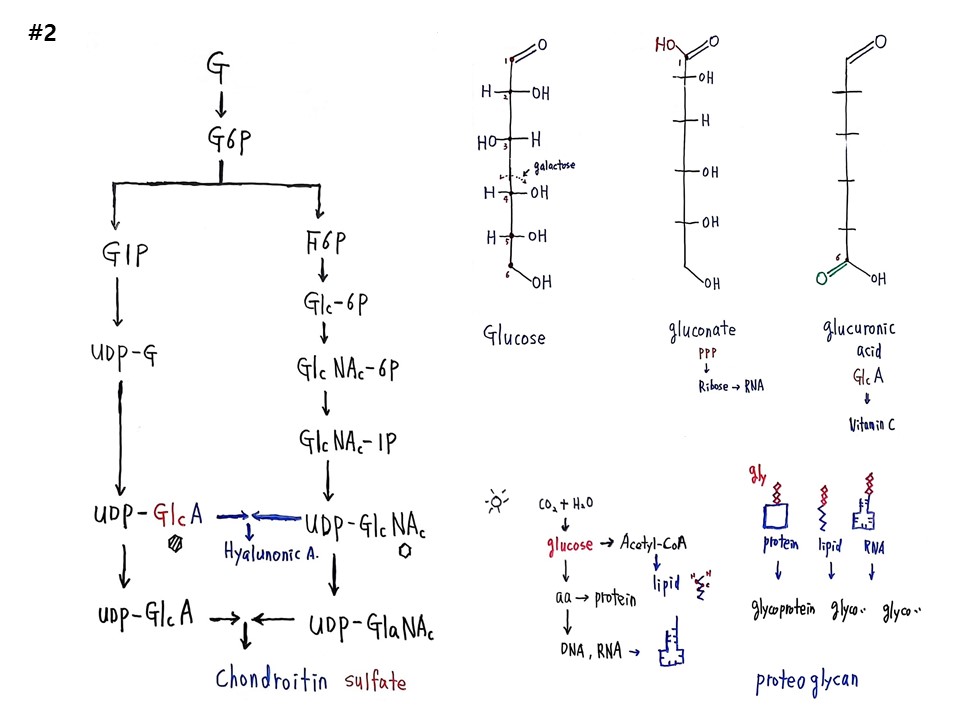 #2
G
G6P
G1P
F6P
Glc-6P
UDP-G
GlcNAc-6P
GlcNAc-1P
UDP-GlcA
UDP-GlcNAc
Hyalunonic A.
UDP-GlcA
UDP-GlaNAc
Chondroitin sulfate
1 O
H 2 OH
HO 3 H
galactose
H 4 OH
H 5 OH
6 OH
Glucose
HO O
1
OH
H
OH
OH
OH
gluconate
PPP
Ribose → RNA
O
6
O OH
glucuronic
acid
GlcA
Vitamin C
CO2 + H2O
glucose → Acetyl-CoA
lipid
aa → protein
DNA, RNA →
gly
protein lipid RNA
glycoprotein glyco.. glyco..
proteoglycan